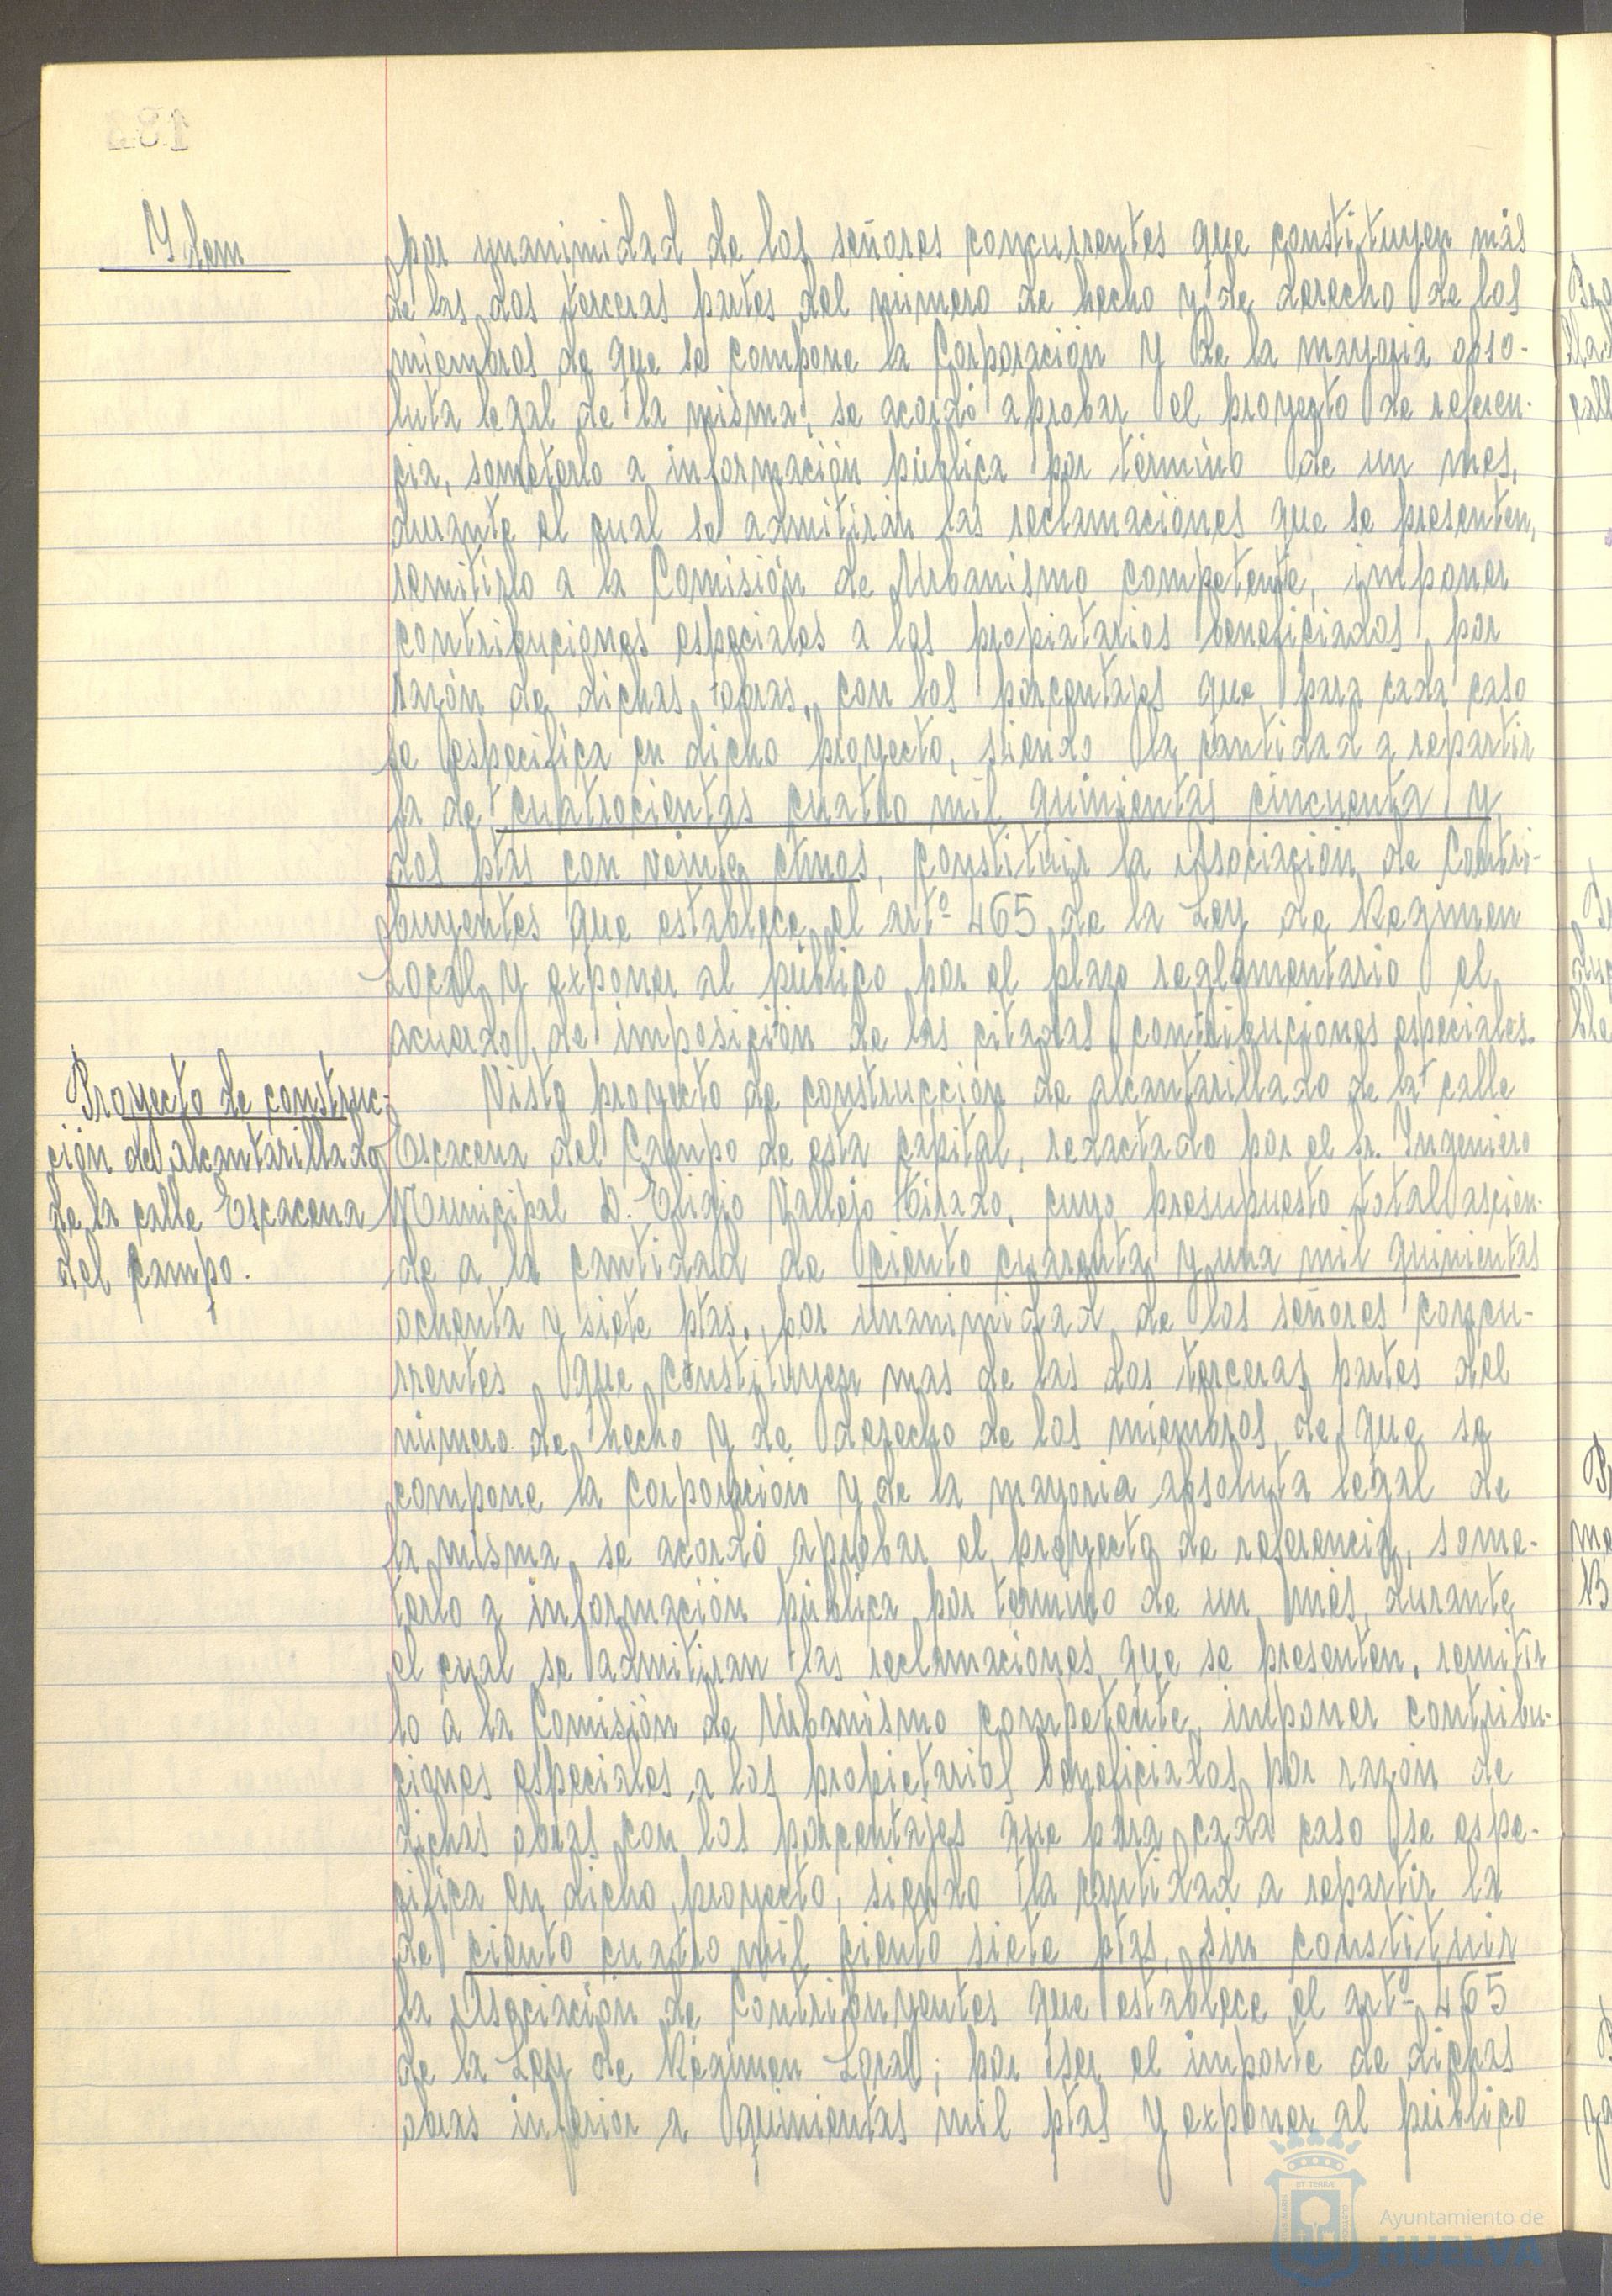 Ydem
por unanimidad de los señores concurrentes que constituyen más
de las dos terceras partes del número de hecho y de derecho de los
miembros de que se compone la Corporación y de la mayoria abso-
luta legal de la misma, se acordó aprobar el proyecto de referen-
cia, someterlo a información pública por término de un mes,
durante el cual se admitirán las reclamaciones que se presenten,
remitirlo a la Comisión de Urbanismo competente, imponer
contribuciones especiales a los propietarios beneficiados por
razón de dichas obras, con los porcentajes que para cada caso
se especifica en dicho proyecto, siendo la cantidad a repartir
la de cuatrocientas cuatro mil quinientas cincuenta y
dos ptas con veinte ctmos, constituir la Asociación de Contri-
buyentes que establece el artº 465 de la Ley de Regimen
Local y exponer al público por el plazo reglamentario el
acuerdo de imposición de las citadas contribuciones especiales.
Proyecto de construc-
ción del alcantarillado
de la calle Escacena
del Campo.
Visto proyecto de construcción de alcantarillado de la calle
Escacena del Campo de esta capital, redactado por el Sr. Ingeniero
Municipal D. Eligio Vallejo Tirado, cuyo presupuesto total ascien-
de a la cantidad de ciento cuarenta y una mil quinientas
ochenta y siete ptas., por unanimidad de los señores concu-
rrentes que constituyen mas de las dos terceras partes del
número de hecho y de derecho de los miembros de que se
compone la Corporación y de la mayoria absoluta legal de
la misma, se acordó aprobar el proyecto de referencia, some-
terlo a información pública por termino de un mes, durante
el cual se admitiran las reclamaciones que se presenten, remitir
lo a la Comisión de Urbanismo competente, imponer contribu-
ciones especiales a los propietarios beneficiados por razón de
dichas obras con los porcentajes que para cada caso se espe-
cifica en dicho proyecto, siendo la cantidad a repartir la
de ciento cuatro mil ciento siete ptas, sin constituir
la Asociación de Contribuyentes que establece el artº 465
de la Ley de Régimen Local; por ser el importe de dichas
obras inferior a quinientas mil ptas y exponer al público
Ayuntamiento de
HUELVA